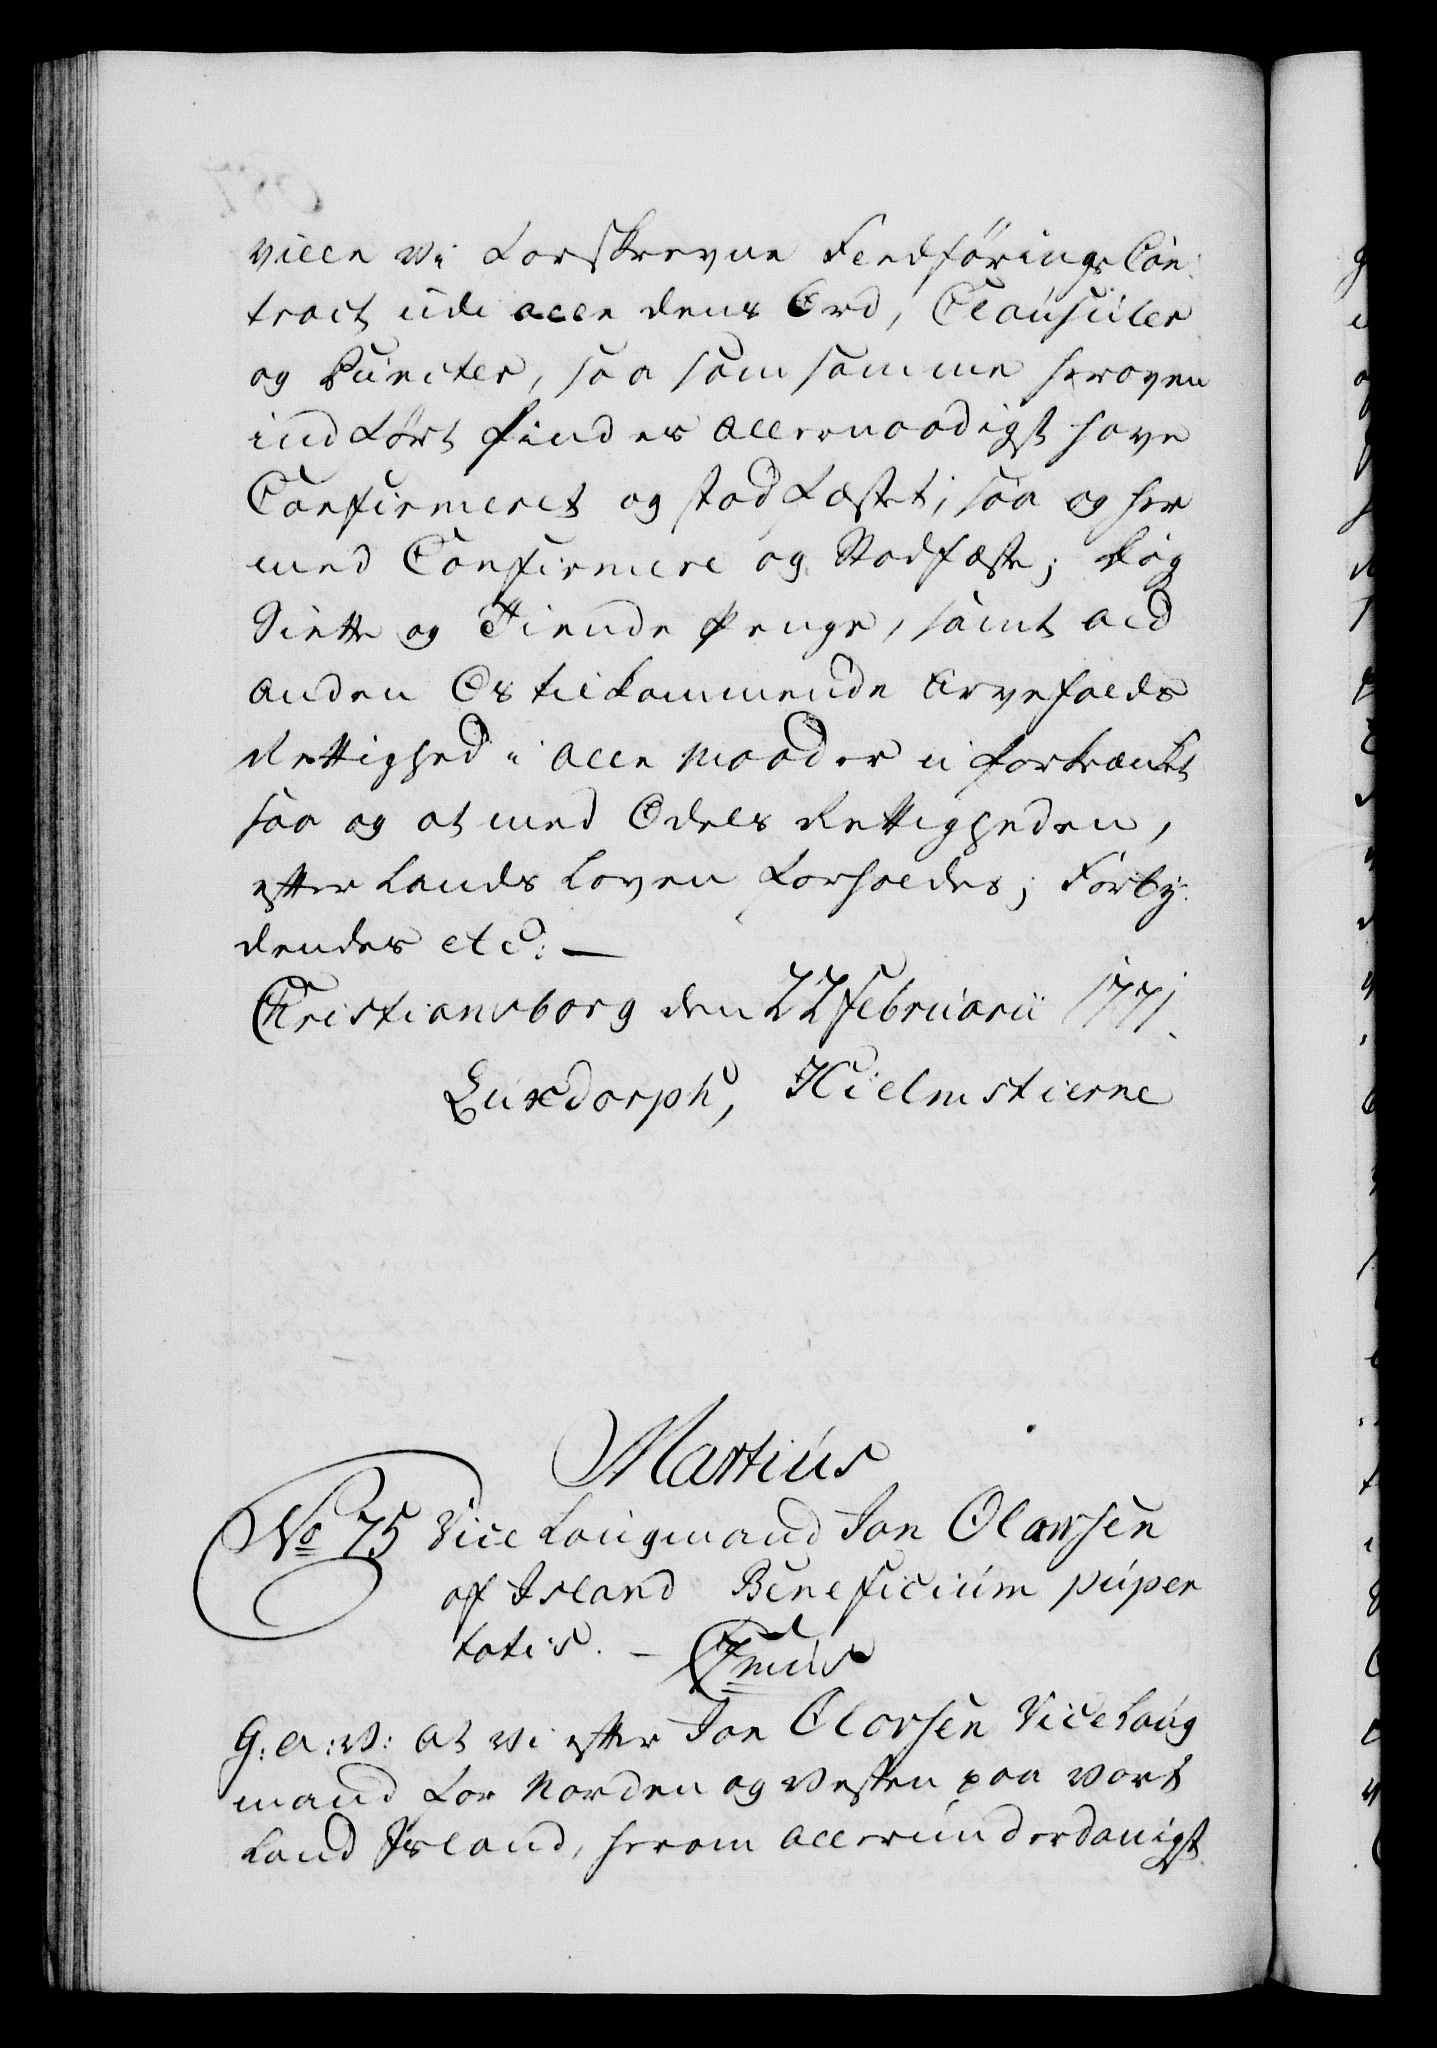 ville Vi forskrevne Fledførings Con-
tract udi alle dens Ord, Clausuler
og Puncter, saa som samme heroven
indført findes allernaadigst have
Confirmeret og stadfæstet; saa og her
med Confirmere og Stadfæste; Dog
Siette og Tiende Penge, samt ald
anden Os tilkommende Arvefalds
Rettighed i alle Maader uforkrænket
saa og at med Odels Rettigheden,
efter Lands Loven forholdes; Forby-
dendes etc: —
Christiansborg den 22 Februarii 1771.
Luxdorph, Hielmstierne
Martius
No 75 Vice Laugmand Jon Olawsen
af Island Beneficium puper
tatis. — 7mus
G: A: V: at Vi efter Jon Olavsen Vice Laug
mand for Norden og Vesten paa vort
Land Island, herom allerunderdanigst